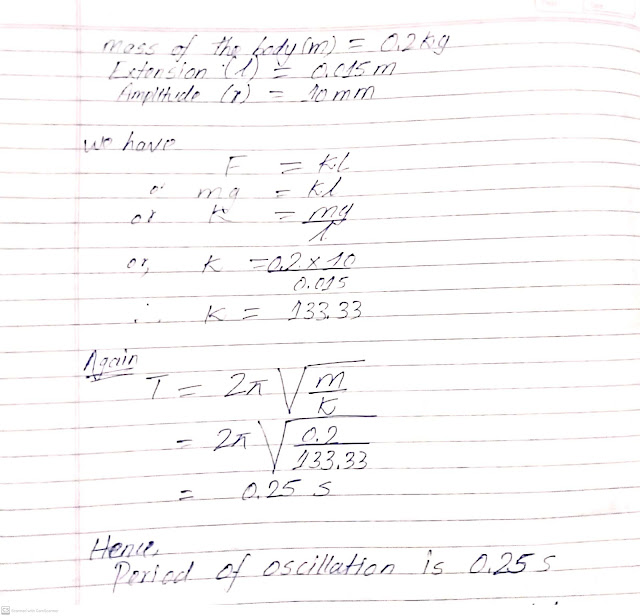 mass of the body (m) = 0.2 kg
Extension (l) = 0.015 m
Amplitude (r) = 10 mm
we have
F = Kl
or mg = Kl
or K = mg
l
or, K = 0.2 × 10
0.015
∴ K = 133.33
Again
T = 2π √ m
K
= 2π √ 0.2
133.33
= 0.25 s
Hence,
Period of oscillation is 0.25 s